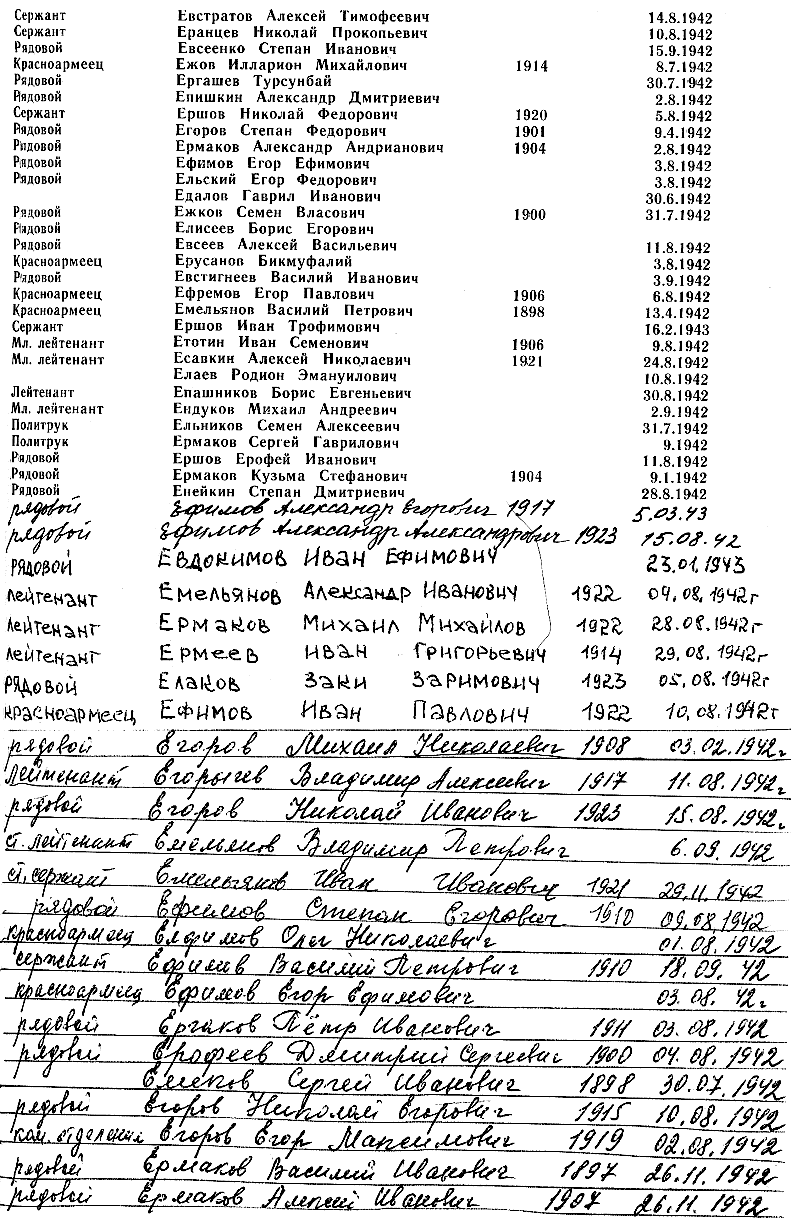 Сержант Евстратов Алексей Тимофеевич 14.8.1942
Сержант Еранцев Николай Прокопьевич 10.8.1942
Рядовой Евсеенко Степан Иванович 15.9.1942
Красноармеец Ежов Илларион Михайлович 1914 8.7.1942
Рядовой Ергашев Турсунбай 30.7.1942
Рядовой Епишкин Александр Дмитриевич 2.8.1942
Сержант Ершов Николай Федорович 1920 5.8.1942
Рядовой Егоров Степан Федорович 1901 9.4.1942
Рядовой Ермаков Александр Андрианович 1904 2.8.1942
Рядовой Ефимов Егор Ефимович 3.8.1942
Рядовой Ельский Егор Федорович 3.8.1942
Едалов Гаврил Иванович 30.6.1942
Рядовой Ежков Семен Власович 1900 31.7.1942
Рядовой Елисеев Борис Егорович
Рядовой Евсеев Алексей Васильевич 11.8.1942
Красноармеец Ерусанов Бикмуфалий 3.8.1942
Рядовой Евстигнеев Василий Иванович 3.9.1942
Красноармеец Ефремов Егор Павлович 1906 6.8.1942
Красноармеец Емельянов Василий Петрович 1898 13.4.1942
Сержант Ершов Иван Трофимович 16.2.1943
Мл. лейтенант Етотин Иван Семенович 1906 9.8.1942
Мл. лейтенант Есавкин Алексей Николаевич 1921 24.8.1942
Елаев Родион Эмануилович 10.8.1942
Лейтенант Епашников Борис Евгеньевич 30.8.1942
Мл. лейтенант Ендуков Михаил Андреевич 2.9.1942
Политрук Ельников Семен Алексеевич 31.7.1942
Политрук Ермаков Сергей Гаврилович 9.1942
Рядовой Ершов Ерофей Иванович 11.8.1942
Рядовой Ермаков Кузьма Стефанович 1904 9.1.1942
Рядовой Енейкин Степан Дмитриевич 28.8.1942
рядовой Ефимов Александр Егорович 1917 5.03.43
рядовой Ефимов Александр Александрович 1923 15.08.42
рядовой Евдокимов Иван Ефимович 23.01.1943
лейтенант Емельянов Александр Иванович 1922 04.08.1942г
лейтенант Ермаков Михаил Михайлов 1922 28.08.1942г
лейтенант Ермеев Иван Григорьевич 1914 29.08.1942г
рядовой Елаков Заки Заримович 1923 05.08.1942г
красноармеец Ефимов Иван Павлович 1922 10.08.1942г
рядовой Егоров Михаил Николаевич 1908 03.02.1942г
Лейтенант Егорычев Владимир Алексеевич 1917 11.08.1942г
рядовой Егоров Николай Иванович 1923 15.08.1942г
ст. лейтенант Емельянов Владимир Петрович 6.09.1942
ст. сержант Емельянов Иван Иванович 1921 29.11.1942
рядовой Ефимов Степан Егорович 1910 09.08.1942
красноармеец Елфимов Олег Николаевич 01.08.1942
сержант Ефимов Василий Петрович 1910 18.09.42
красноармеец Ефимов Егор Ефимович 03.08.42г
рядовой Ергаков Пётр Иванович 1911 03.08.1942
рядовой Ерофеев Дмитрий Сергеевич 1900 04.08.1942
Сергей Иванович 1898 30.07.1942
рядовой Егоров Николай Егорович 1915 10.08.1942
ком. отделения Егоров Егор Максимович 1919 02.08.1942
рядовой Ермаков Василий Иванович 1897 26.11.1942
рядовой Ермаков Алексей Иванович 1907 26.11.1942